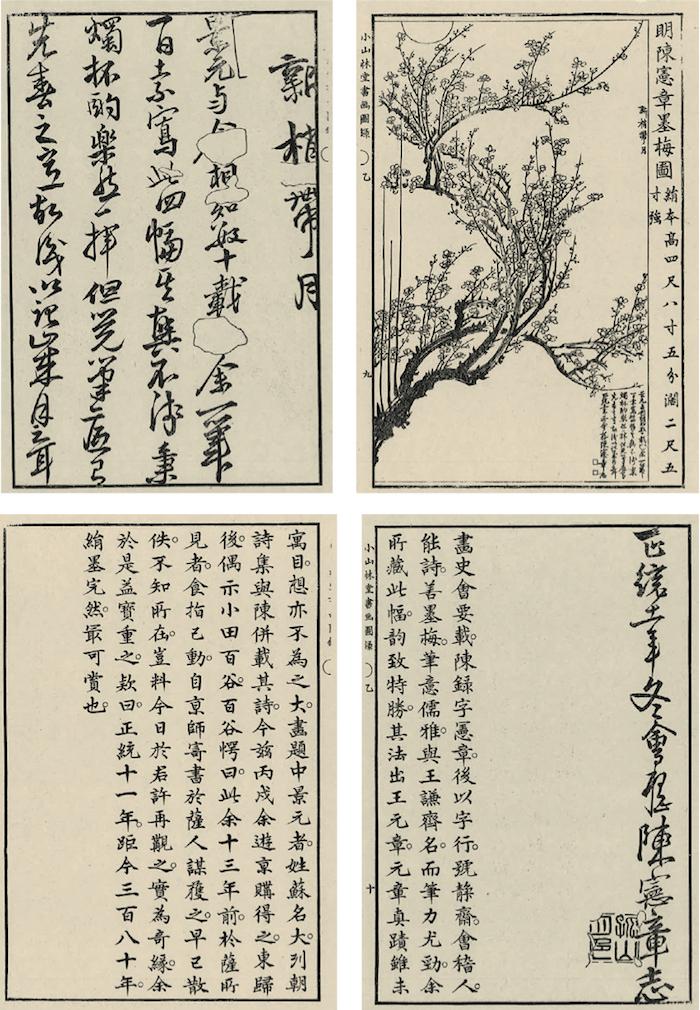 明陳憲章墨梅圖 絹本高四尺八寸五分闊二尺五寸強
新梢帶月
小山林堂書画圖録 乙 九
新梢帶月
景元与 相知數十載 余一筆
百索寫此四幅其興不淺秉
燭杯酌樂然一揮但覺筆底已
先春之意故淺以記歲月耳
正統十一年冬會稽陳憲章志
畫史會要載。陳録字憲章。後以字行。號靜齋。會稽人。
能詩。善墨梅。筆意儒雅。與王謙齊名。而筆力尤勁。余
所藏此幅。韵致特勝。其法出王元章。元章真蹟雖未
小山林堂書画圖録 乙 十
寓目。想亦不為之大。畫題中景元者。姓蘇名大。列朝
詩集與陳併載其詩。今茲丙戌余遊京購得之。東歸
後。偶示小田百谷。百谷愕曰。此余十三年前。於薩所
見者。食指已動。自京師寄書於薩人謀獲之。早已散
佚。不知所在。豈料今日於君許再觀之。實為奇縁。余
於是益寶重之。款曰。正統十一年。距今三百八十年。
絹墨完然。最可賞也。